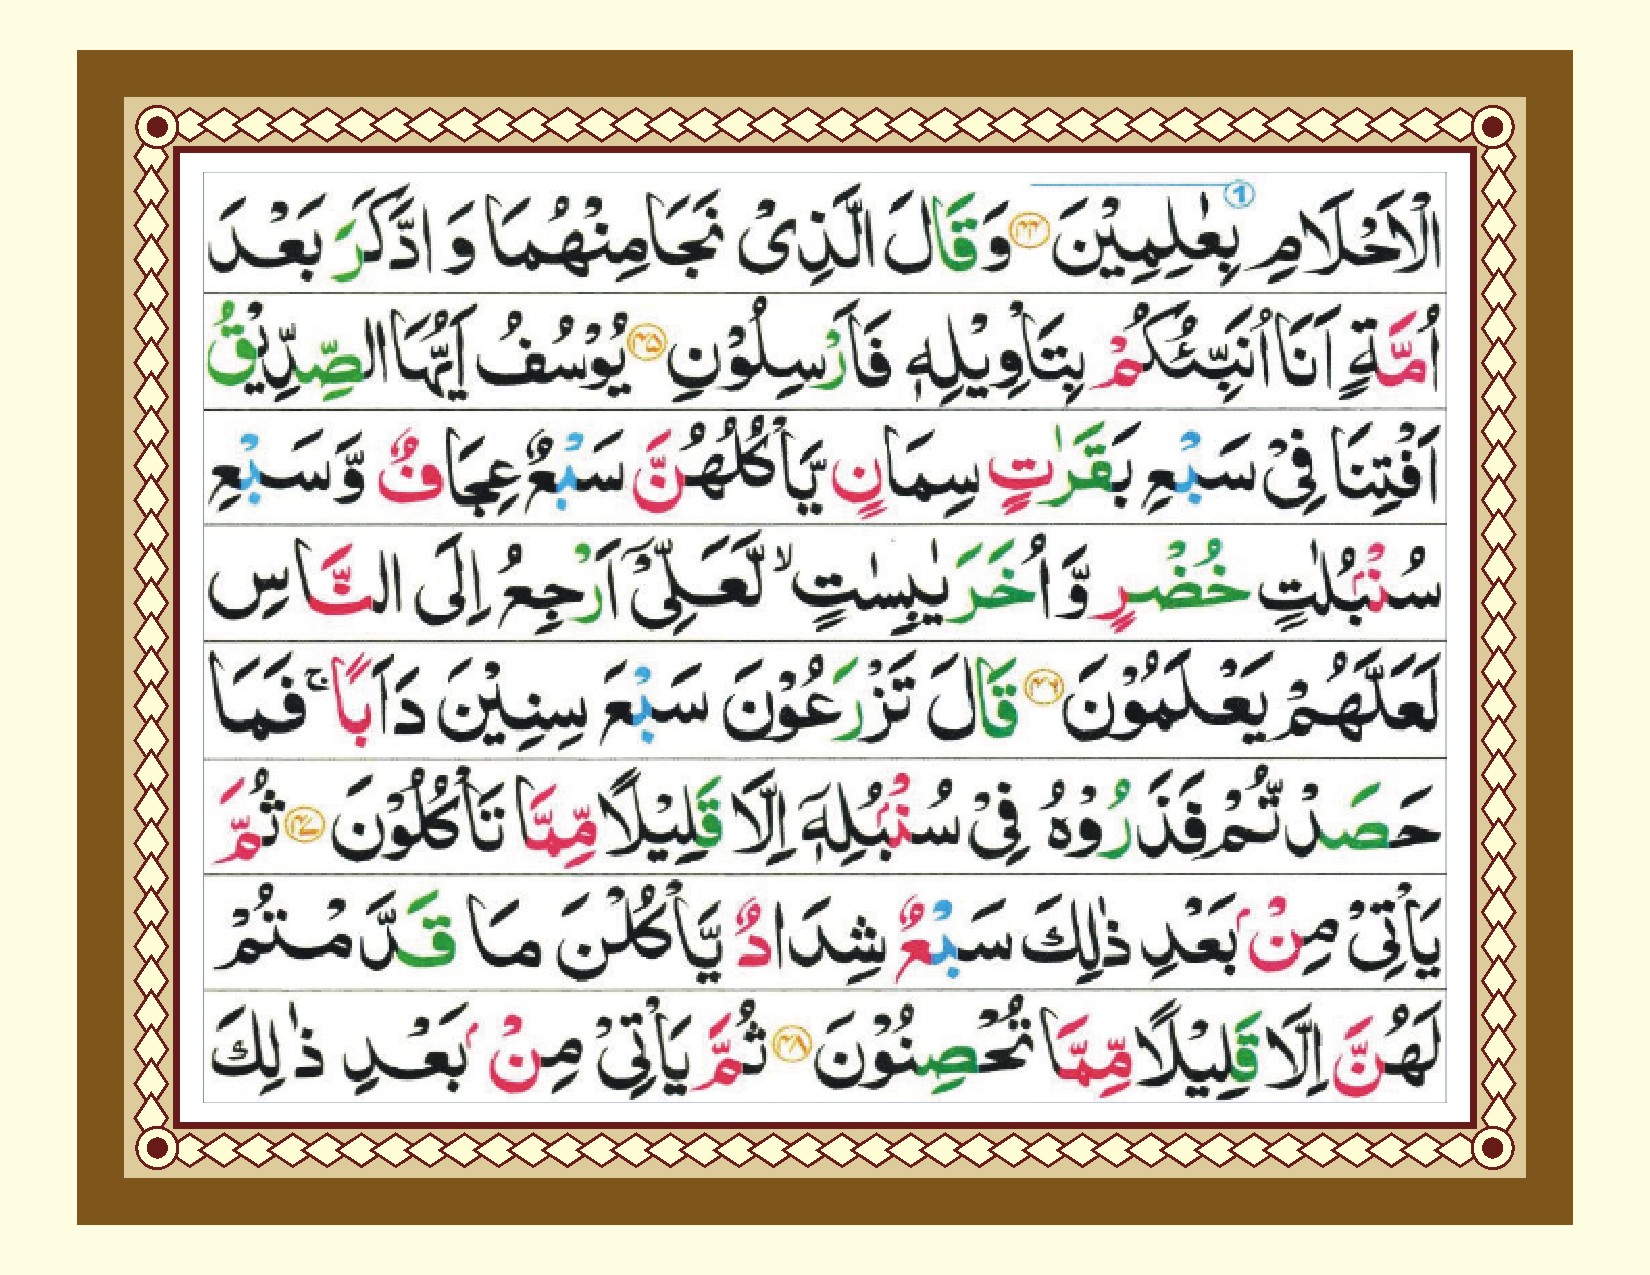 الْاَحْلَامِ بِعٰلِمِيْنَ ① ﴿۴۴﴾ وَقَالَ الَّذِىْ نَجَا مِنْهُمَا وَ ادَّكَرَ بَعْدَ
اُمَّةٍ اَنَا اُنَبِّئُكُمْ بِتَاْوِيْلِهٖ فَاَرْسِلُوْنِ ﴿۴۵﴾ يُوْسُفُ اَيُّهَا الصِّدِّيْقُ
اَفْتِنَا فِىْ سَبْعِ بَقَرٰتٍ سِمَانٍ يَّاْكُلُهُنَّ سَبْعٌ عِجَافٌ وَّ سَبْعِ
سُنْۢبُلٰتٍ خُضْرٍ وَّ اُخَرَ يٰبِسٰتٍ ۙ لَّعَلِّىْۤ اَرْجِعُ اِلَى النَّاسِ
لَعَلَّهُمْ يَعْلَمُوْنَ ﴿۴۶﴾ قَالَ تَزْرَعُوْنَ سَبْعَ سِنِيْنَ دَاَبًا ۚ فَمَا
حَصَدْتُّمْ فَذَرُوْهُ فِىْ سُنْۢبُلِهٖۤ اِلَّا قَلِيْلًا مِّمَّا تَاْكُلُوْنَ ﴿۴۷﴾ ثُمَّ
يَاْتِىْ مِنْۢ بَعْدِ ذٰلِكَ سَبْعٌ شِدَادٌ يَّاْكُلْنَ مَا قَدَّمْتُمْ
لَهُنَّ اِلَّا قَلِيْلًا مِّمَّا تُحْصِنُوْنَ ﴿۴۸﴾ ثُمَّ يَاْتِىْ مِنْۢ بَعْدِ ذٰلِكَ